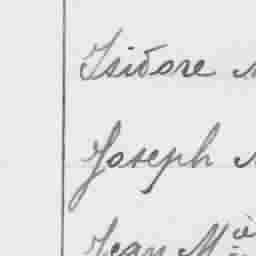 Isidore
Joseph
Jean Mie